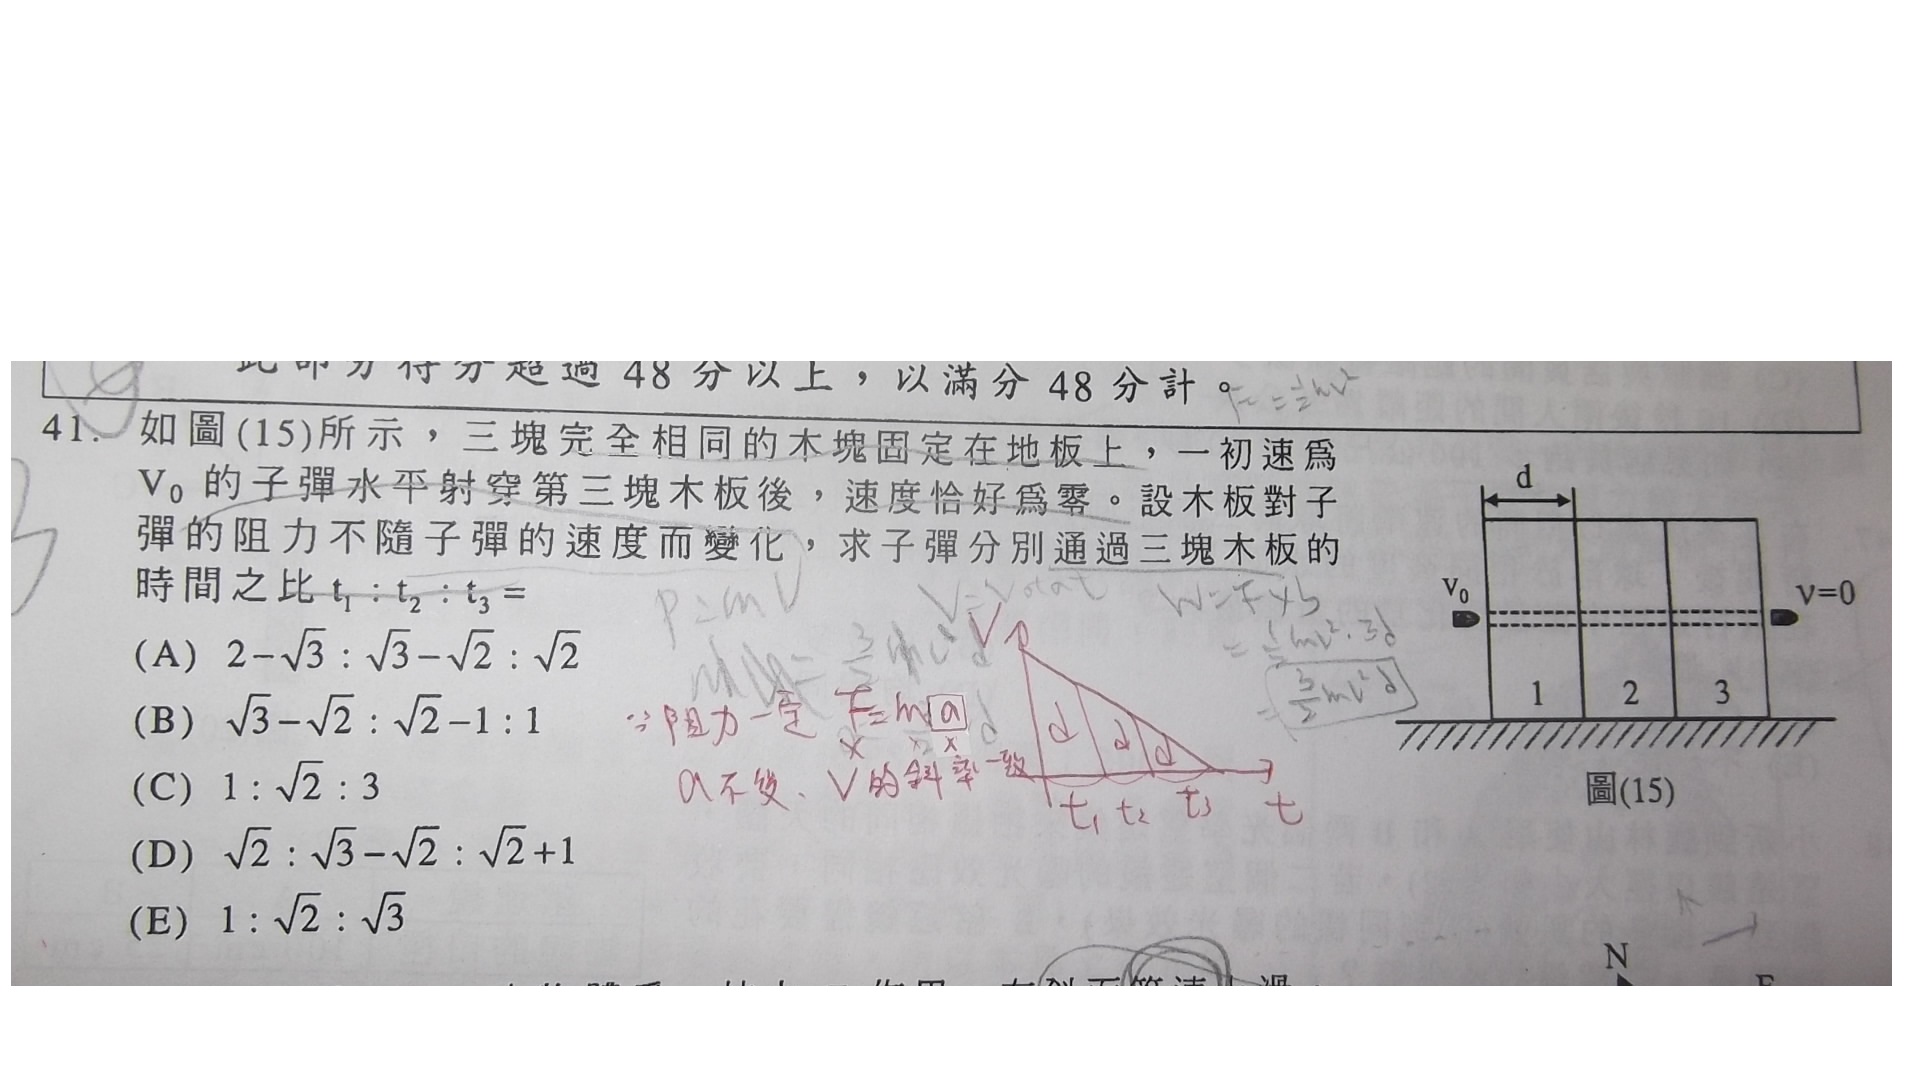 此部分得分超過48分以上，以滿分48分計。
41. 如圖(15)所示，三塊完全相同的木塊固定在地板上，一初速為
V₀的子彈水平射穿第三塊木板後，速度恰好為零。設木板對子
彈的阻力不隨子彈的速度而變化，求子彈分別通過三塊木板的
時間之比 t₁ : t₂ : t₃ =
(A) 2−√3 : √3−√2 : √2
(B) √3−√2 : √2−1 : 1
(C) 1 : √2 : 3
(D) √2 : √3−√2 : √2+1
(E) 1 : √2 : √3
P=mV
∵阻力一定 F=ma
x x x
a不變、V的斜率一致
V
d d d
t₁ t₂ t₃ t
= ½mv²·3d
= 3/2 mv²d
d
V₀
v=0
1 2 3
圖(15)
N